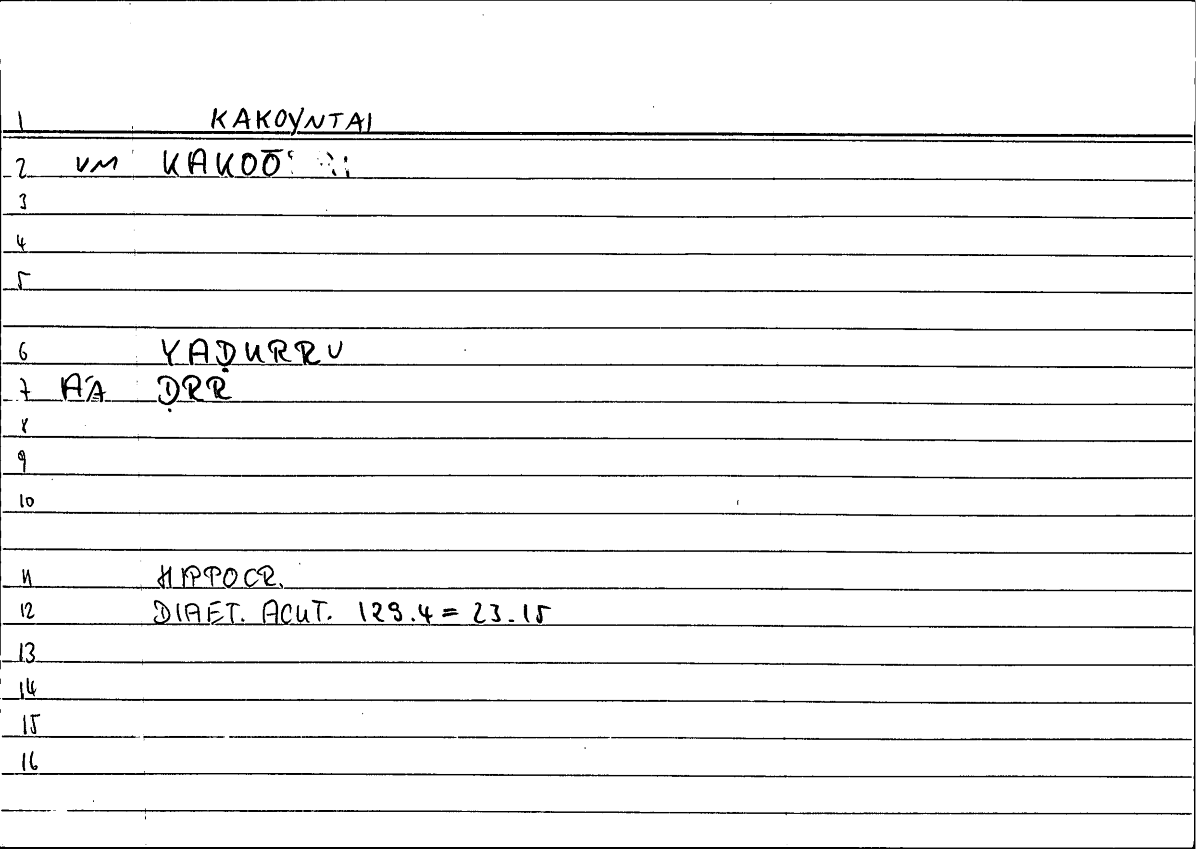 1 KAKOYNTAI
2 VM KAKOŌ
3
4
5
6 YAḌURRU
7 AA ḌRR
8
9
10
11 HIPPOCR.
12 DIAET. ACUT. 129.4 = 23.15
13
14
15
16